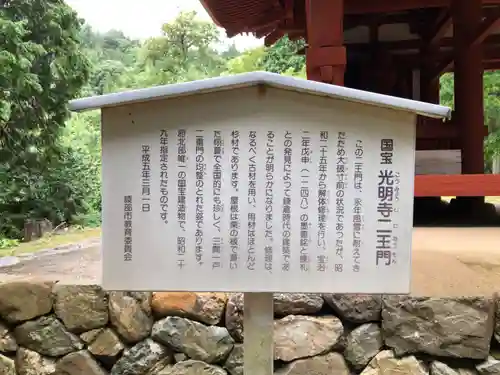 国宝 光明寺二王門
この二王門は、永年風雪に耐えてき
たため大破寸前の状況であったが、昭
和二十五年から解体修理を行い、宝治
二年戊申(一二四八)の墨書銘と棟札
との発見によって鎌倉時代の建築であ
ることが明らかになりました。修理は、
なるべく古材を用い、用材はほとんど
杉材であります。屋根は栗の板で葺い
た栩葺で全国的にも珍しく、三間一戸
二重門の均整のとれた姿であります。
府北部唯一の国宝建造物で、昭和二十
九年指定されたものです。
平成五年三月一日
綾部市教育委員会